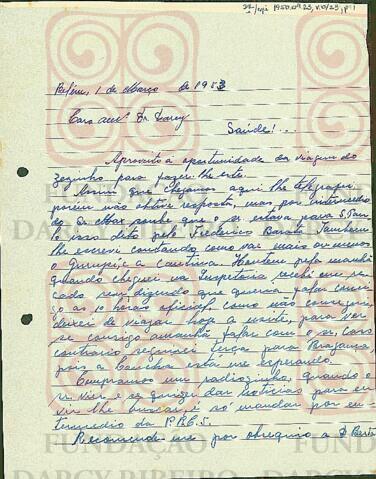 Belém, 1 de Março de 1953
Caro amº Dr. Darcy
Saúde!...
Aproveito a oportunidade da viagem do
zezinho para fazer-lhe esta.
Assim que chegamos aqui lhe telegrafei
porém não obtive resposta, mas por intermedio
do Dr Max soube que o sr. estava para S. Pau
lo isso dito pelo Frederico Barata. Tambem
lhe escrevi contando como vai mais ou menos
o Gurupi, e a cantina. Hontem pela manhã
quando cheguei na Inspetoria, recebi um re
cado me dizendo que queria falar comi
go as 10 horas oficial, como não consegui,
deixei de viajar hoje a noite, para ver
se consigo amanhã falar com o sr. Caso
contrario seguirei terça para Bragança,
pois a lancha está me esperando.
Compramos um radiozinho, quando o
sr. vier e se quizer dar noticias para eu
vir lhe buscar, é só mandar por in
termedio da P.R.C.5.
Recomende-me por obsequio a D Berta
FUNDAÇÃO
DARCY RIBEIRO